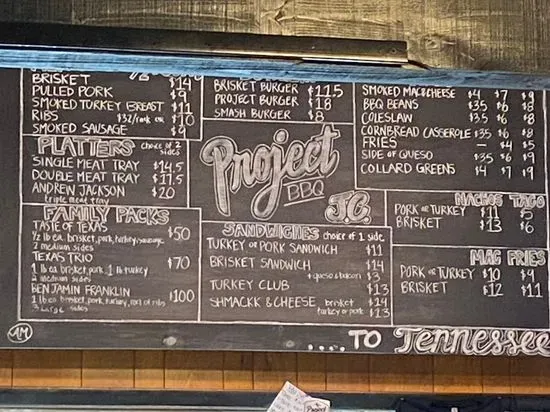 BRISKET $14
PULLED PORK $9
SMOKED TURKEY BREAST $11
RIBS $32/rack $10
SMOKED SAUSAGE $9
PLATTERS choice of 2 sides
SINGLE MEAT TRAY $14.5
DOUBLE MEAT TRAY $17.5
ANDREW JACKSON $20
triple meat tray
FAMILY PACKS
TASTE OF TEXAS $50
½ lb ea. brisket, pork, turkey, sausage
2 medium sides
TEXAS TRIO $70
1 lb ea brisket, pork, 1 lb turkey
2 medium sides
BENJAMIN FRANKLIN $100
1 lb ea brisket, pork, turkey, rack of ribs
3 Large sides
AM
BRISKET BURGER $11.5
PROJECT BURGER $18
SMASH BURGER $8
Project
BBQ
J.C.
SANDWICHES choice of 1 side
TURKEY OR PORK SANDWICH $11
BRISKET SANDWICH $14
+ queso & bacon $3
TURKEY CLUB $13
SHMACKK & CHEESE brisket $14
turkey or pork $13
SMOKED MAC & CHEESE $4 $7 $9
BBQ BEANS $3.5 $6 $8
COLESLAW $3.5 $6 $8
CORNBREAD CASSEROLE $3.5 $6 $8
FRIES — $4 $5
SIDE OF QUESO $3.5 $6 $9
COLLARD GREENS $4 $7 $9
NACHOS TACO
PORK OR TURKEY $11 $5
BRISKET $13 $6
MAC FRIES
PORK OR TURKEY $10 $9
BRISKET $12 $11
.... TO Tennessee
Project